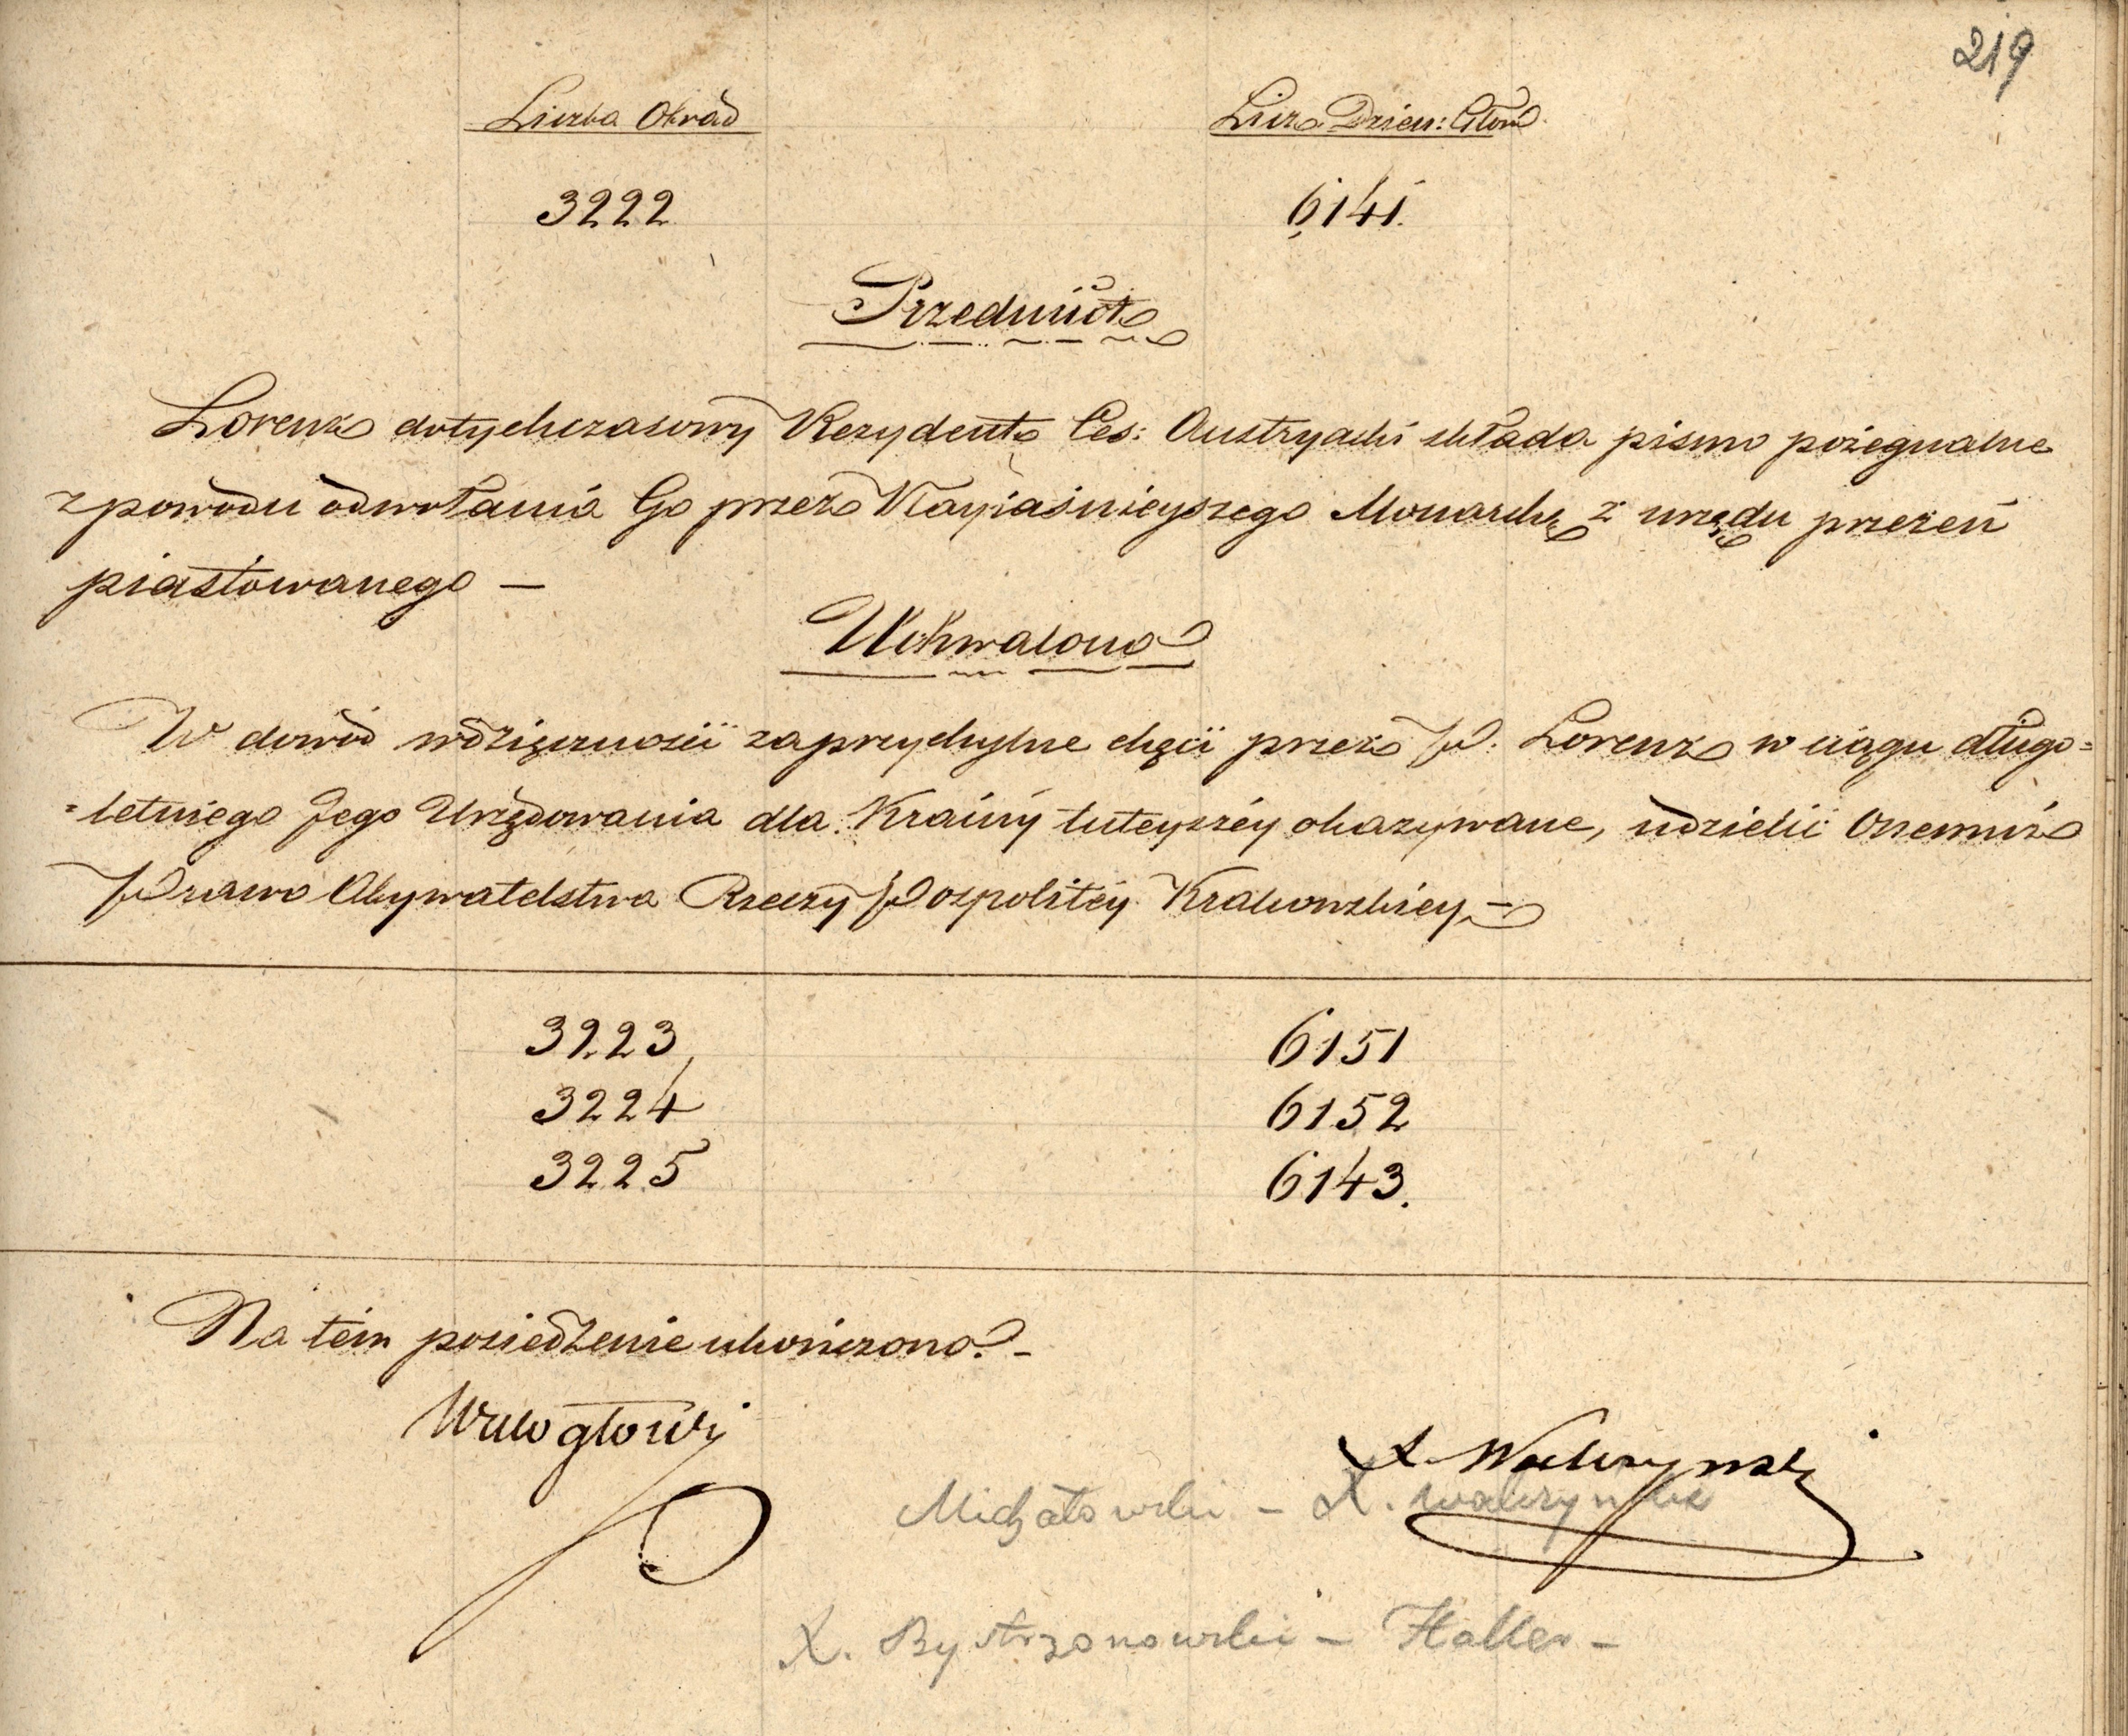 219
Liczba Obrad Licz. Dzien: Głów
3222 6141.
Przedmiot
Lorenz dotychczasowy Rezydent Ces: Austryacki składa pismo pożegnalne
z powodu odwołania Go przez Nayiaśnieyszego Monarchę z urzędu przezeń
piastowanego —
Uchwalono
W dowód wdzięczności za przychylne chęci przez P: Lorenz w ciągu długo=
=letniego Jego Urzędowania dla Krainy tuteyszéy okazywane, udzielić Onemuż
Prawo Obywatelstwa Rzeczy Pospolitéy Krakowskiey —
3223 6151
3224 6152
3225 6143.
Na tém posiedzenie ukończono. —
Wielogłowski
X. Walczyński
Michałowski – X. Walczyński
X. Bystrzonowski – Haller –